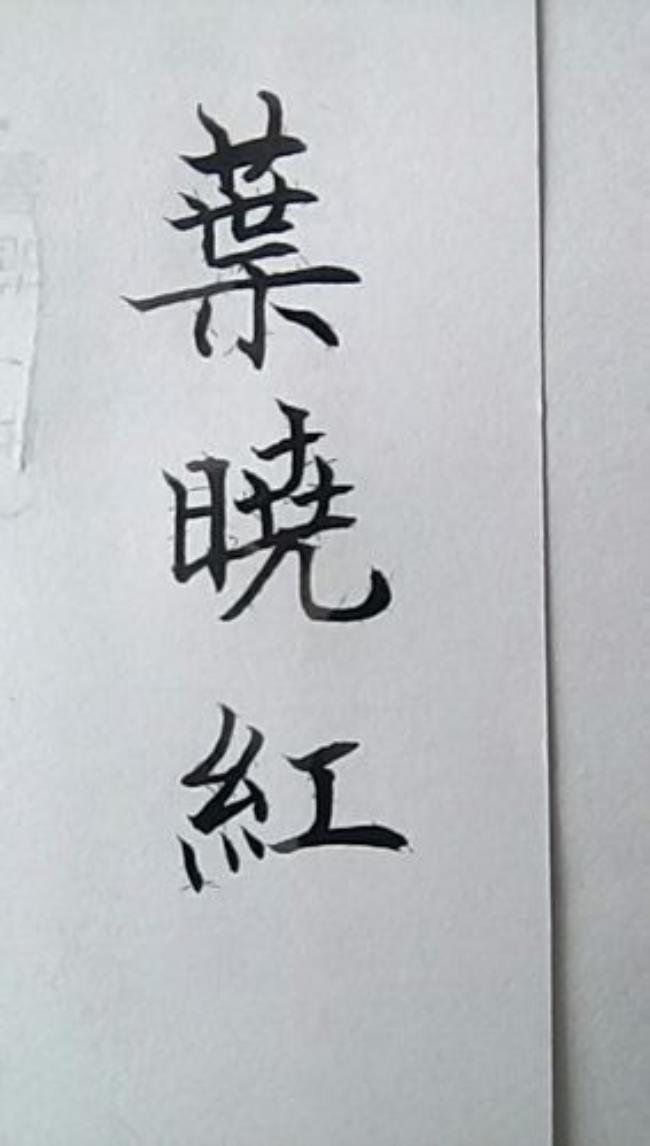 葉暁紅